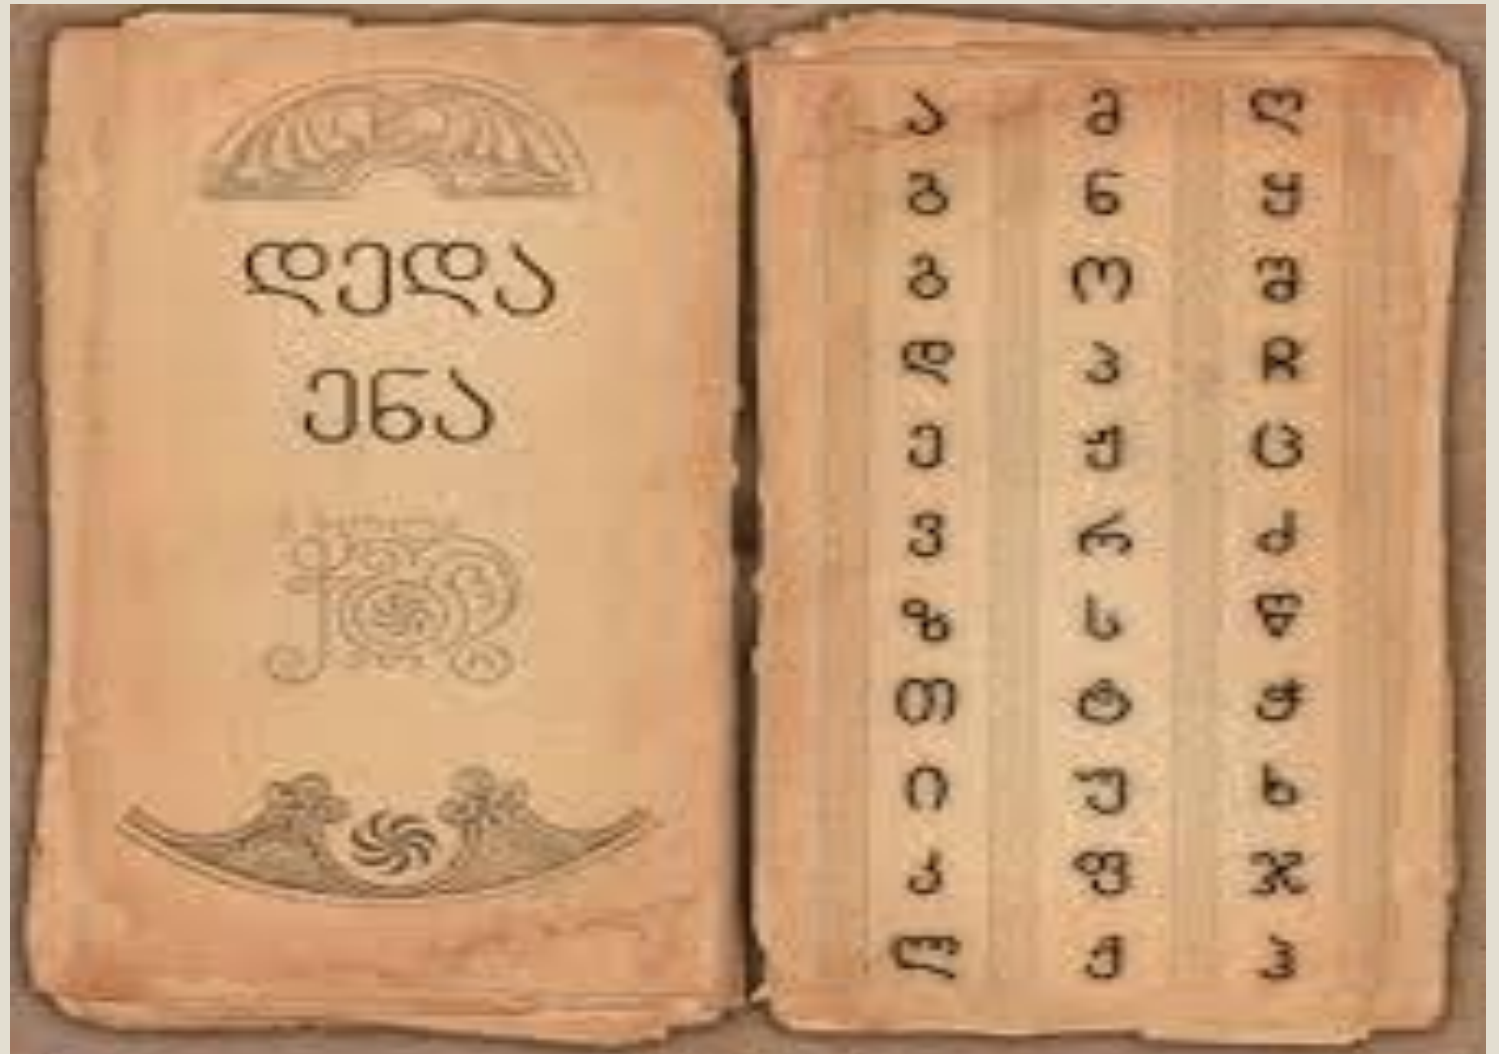 დედა
ენა
ა
ბ
გ
დ
ე
ვ
ზ
თ
ი
კ
ლ
მ
ნ
ო
პ
ჟ
რ
ს
ტ
უ
ფ
ქ
ღ
ყ
შ
ჩ
ც
ძ
წ
ჭ
ხ
ჯ
ჰ